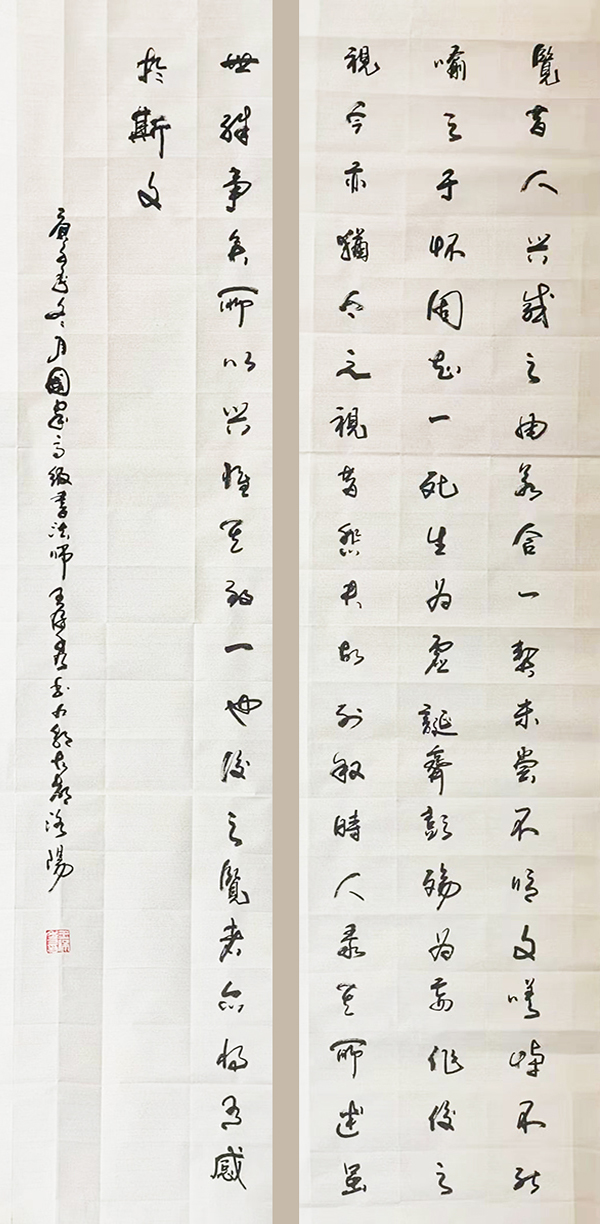 覽昔人兴感之由若合一契未嘗不临文嗟悼不能
喻之于怀固知一死生为虚誕齊彭殤为妄作後之
視今亦猶今之視昔悲夫故列叙時人录其所述虽
世殊事矣所以兴懷其致一也後之覽者亦将有感
於斯文
庚子年冬月國家高级書法师王書於九朝古都洛陽